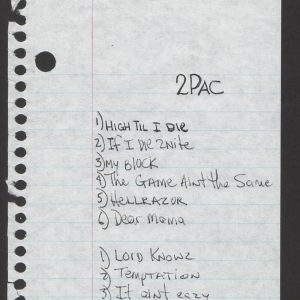 2PAC
1) HIGH TIL I DIE
2) If I DIE 2Nite
3) MY BLOCK
4) The GAME AINT the Same
5) HELLRAZOR
6) Dear Mama
1) LORD KNOWZ
2) TEMPTATION
3) It aint eazy